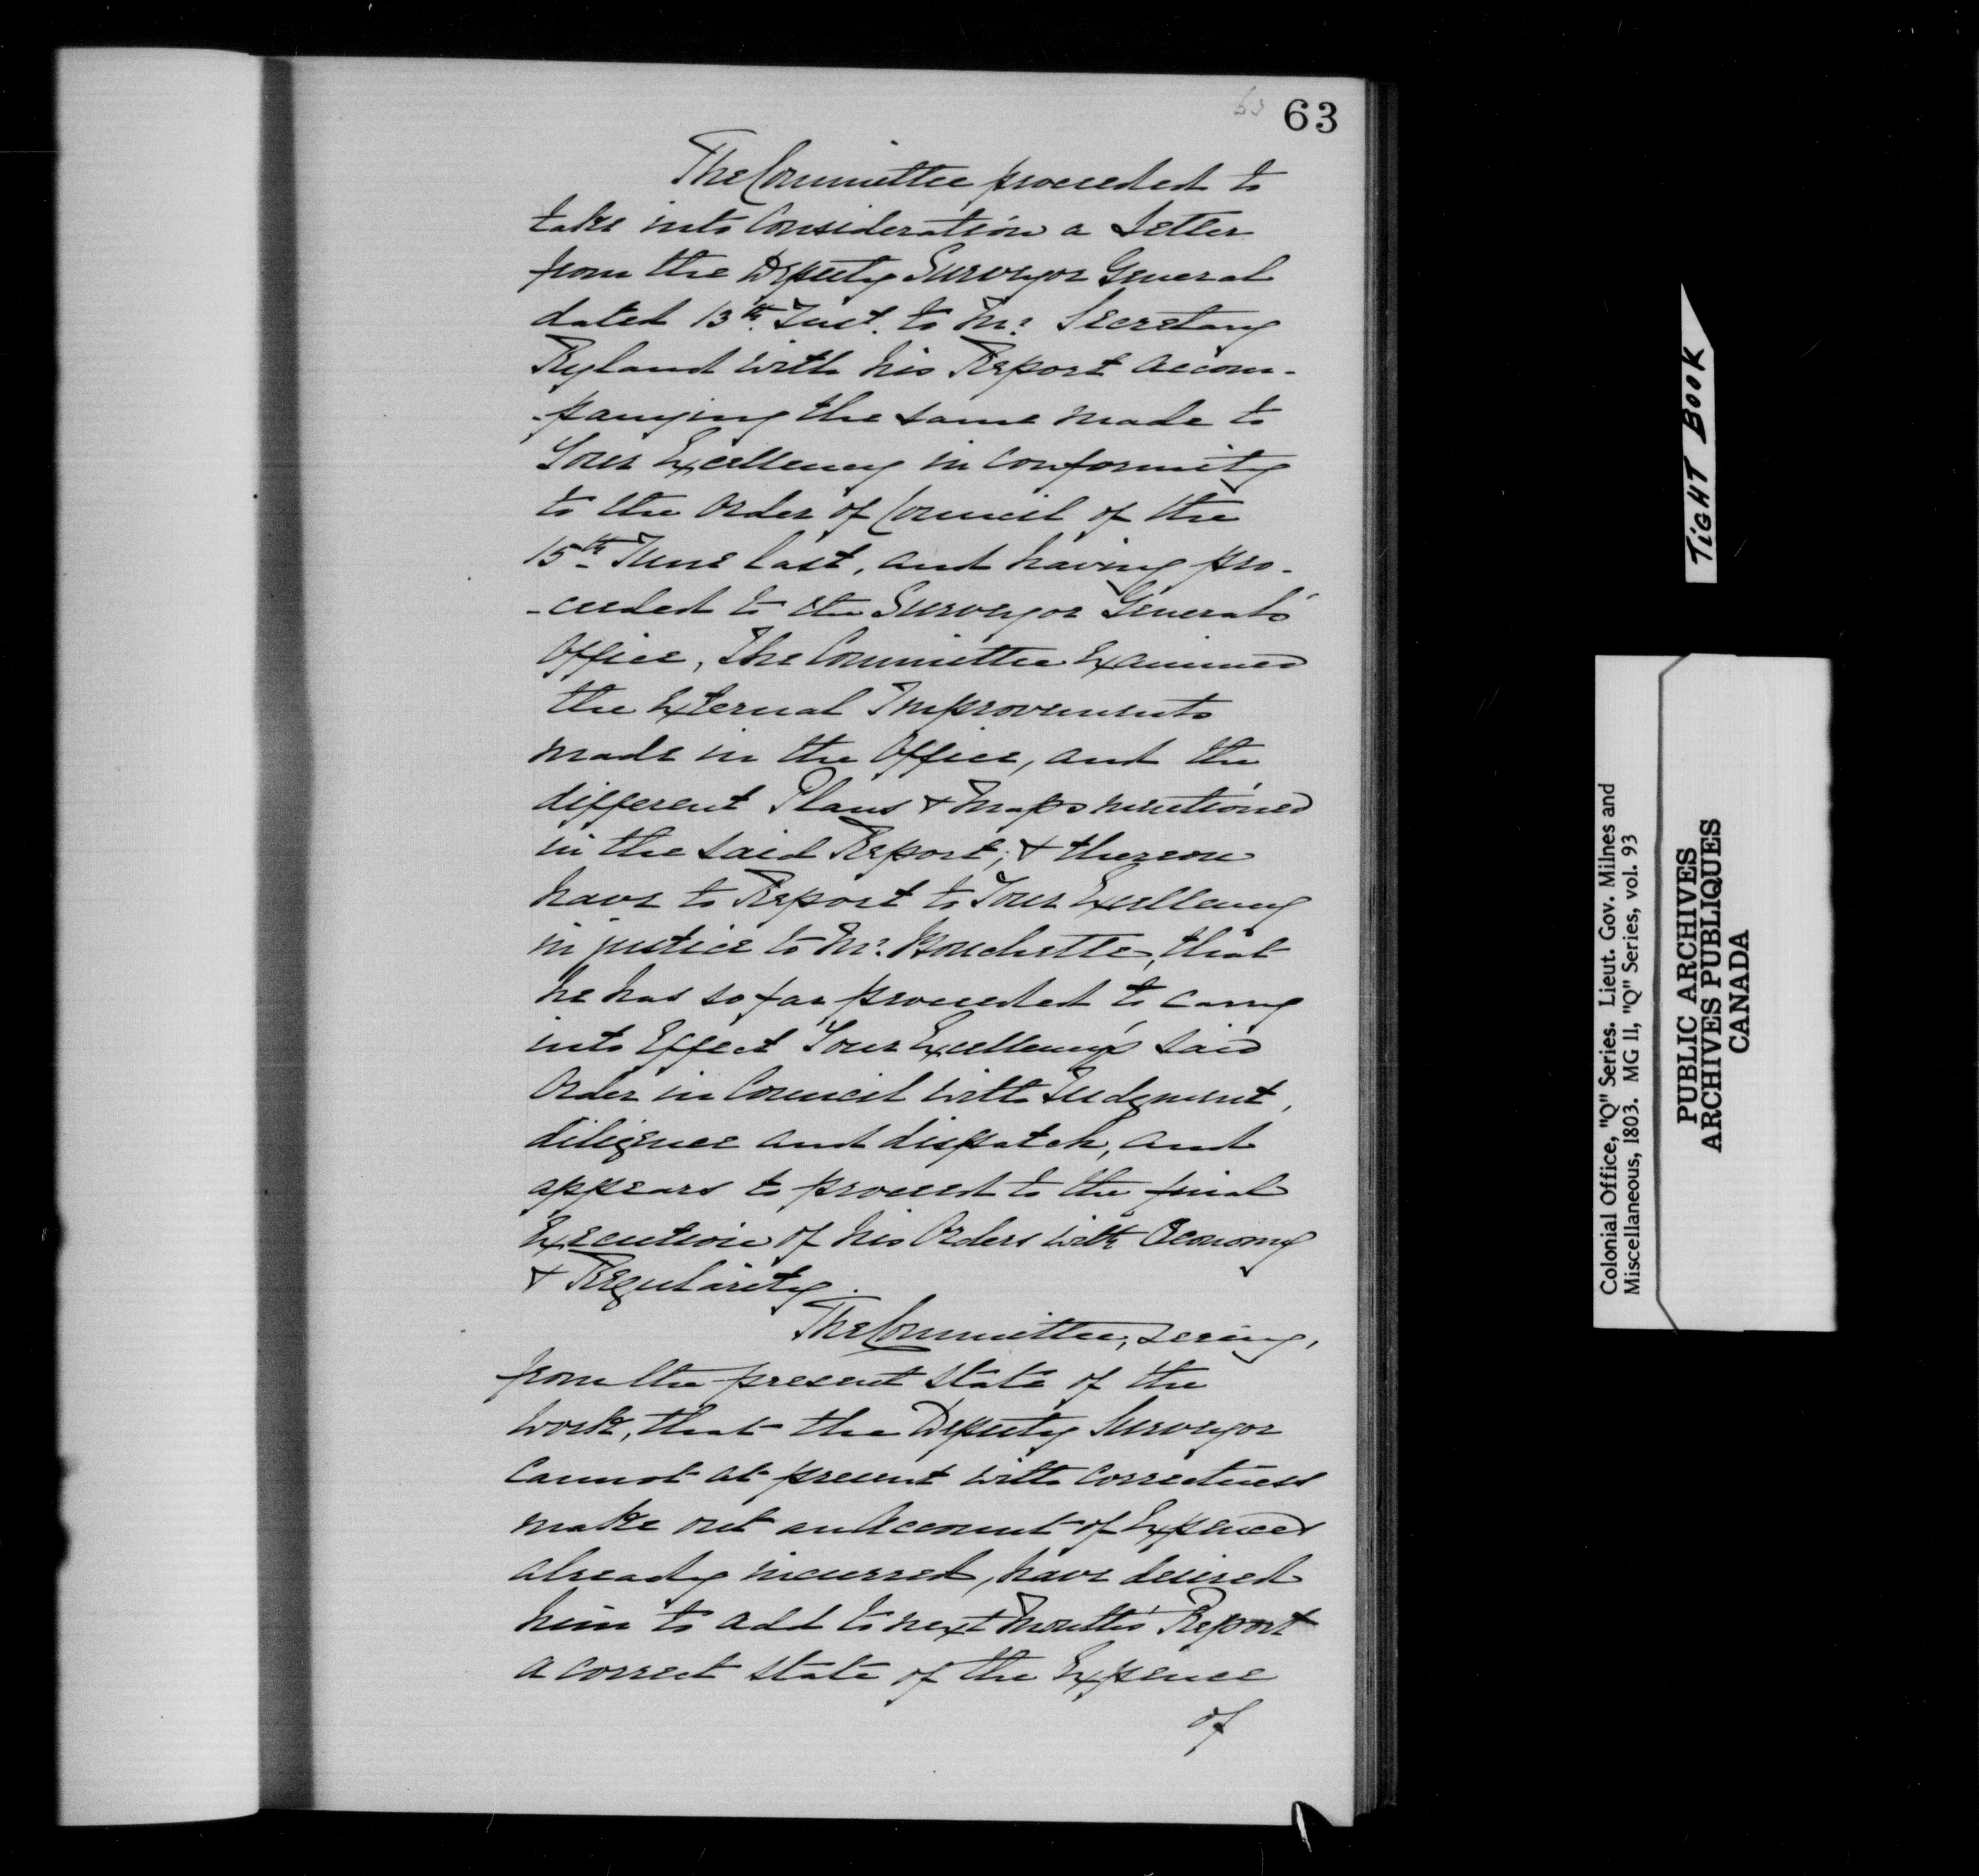 63 63
The Committee proceeded to
take into Consideration a Letter
from the Deputy Surveyor General
dated 13th. Inst. to Mr. Secretary
Ryland with his Report accom-
-panying the same made to
Your Excellency in conformity
to the Order of Council of the
15th June last, and having pro-
-ceeded to the Surveyor General's
Office, The Committee Examined
the External Improvements
made in the Office, and the
different Plans & Maps mentioned
in the said Report; & thereon
have to Report to Your Excellency
in justice to Mr. Bouchette, that
he has so far proceeded to carry
into Effect Your Excellency's said
Order in Council with Judgment,
diligence and dispatch, and
appears to proceed to the final
Execution of his Orders with Oeconomy
& Regularity.
The Committee, seeing,
from the present State of the
Work, that the Deputy Surveyor
Cannot at present with correctness
make out an Account of Expences
already incurred, have desired
him to add to next Month's Report
a correct state of the Expence
of
TIGHT BOOK
Colonial Office, "Q" Series. Lieut. Gov. Milnes and
Miscellaneous, 1803. MG 11, "Q" Series, vol. 93
PUBLIC ARCHIVES
ARCHIVES PUBLIQUES
CANADA